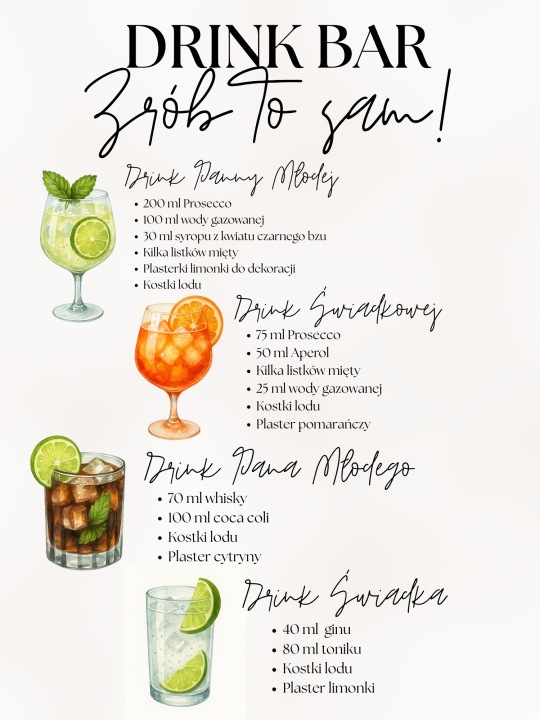 DRINK BAR
Zrób to sam!
Drink Panny Młodej
• 200 ml Prosecco
• 100 ml wody gazowanej
• 30 ml syropu z kwiatu czarnego bzu
• Kilka listków mięty
• Plasterki limonki do dekoracji
• Kostki lodu
Drink Świadkowej
• 75 ml Prosecco
• 50 ml Aperol
• Kilka listków mięty
• 25 ml wody gazowanej
• Kostki lodu
• Plaster pomarańczy
Drink Pana Młodego
• 70 ml whisky
• 100 ml coca coli
• Kostki lodu
• Plaster cytryny
Drink Świadka
• 40 ml ginu
• 80 ml toniku
• Kostki lodu
• Plaster limonki